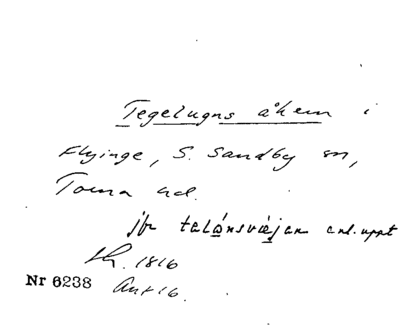 Tegelugns åkern i
Flyinge, S. Sandby sn,
Torna hd.
jfr talånsvæjan enl. uppt
Sk. 1816
Nr 6238 Ant 16.